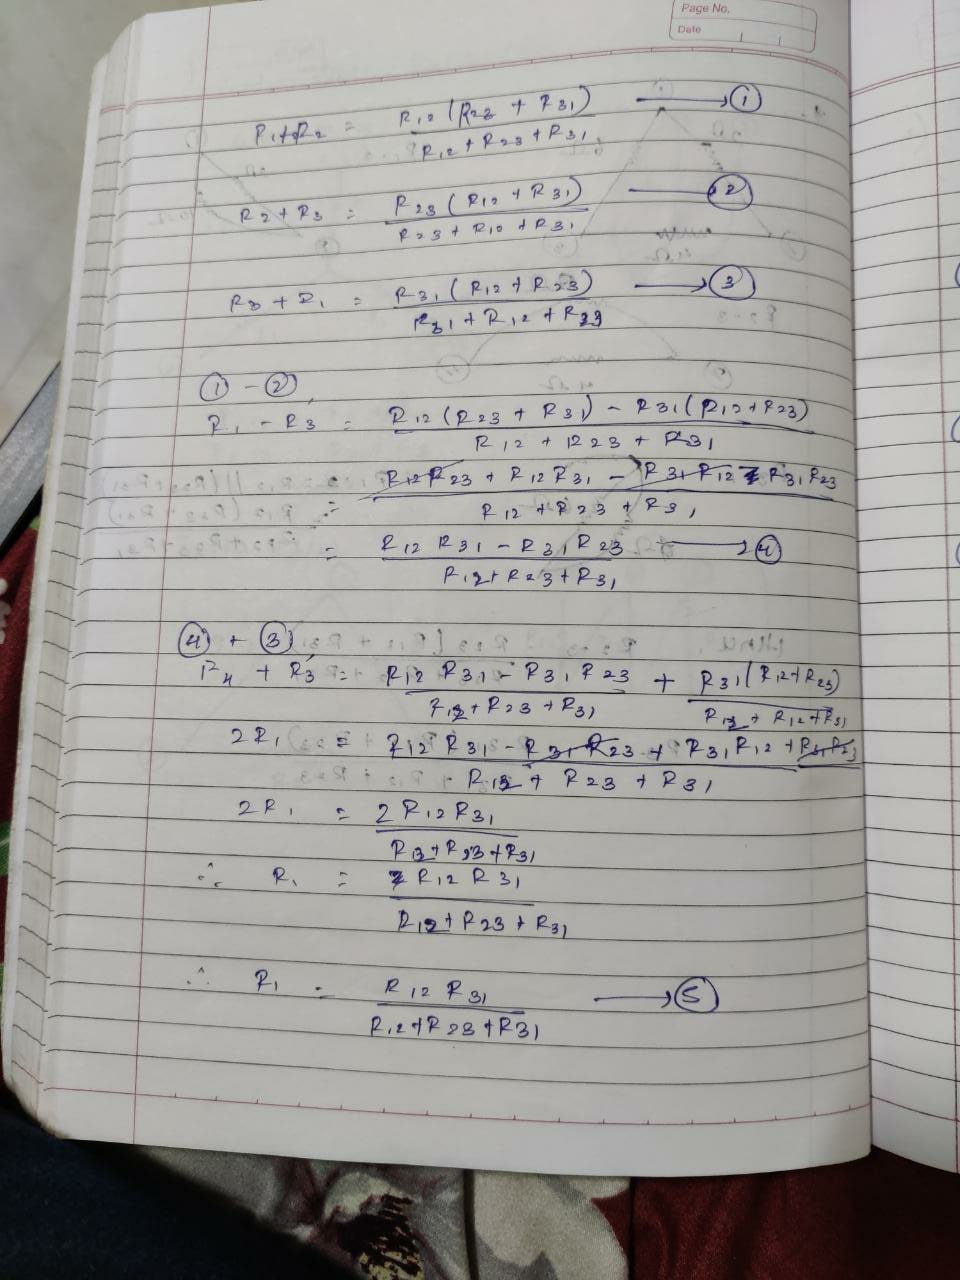 Page No.
Date
R1+R2 = R12 (R23 + R31) / R12 + R23 + R31 → ①
R2 + R3 = R23 (R12 + R31) / R23 + R12 + R31 → ②
R3 + R1 = R31 (R12 + R23) / R31 + R12 + R23 → ③
① - ②,
R1 - R3 = R12 (R23 + R31) - R31 (R12 + R23) / R12 + R23 + R31
= R12 R23 + R12 R31 - R31 R12 - R31 R23 / R12 + R23 + R31
= R12 R31 - R31 R23 / R12 + R23 + R31 → ④
④ + ③,
R4 + R3 = R12 R31 - R31 R23 / R12 + R23 + R31 + R31 (R12 + R23) / R12 + R12 + R31
2R1 = R12 R31 - R31 R23 + R31 R12 + R31 R23 / R12 + R23 + R31
2R1 = 2 R12 R31 / R12 + R23 + R31
∴ R1 = R12 R31 / R12 + R23 + R31
∴ R1 = R12 R31 / R12 + R23 + R31 → ⑤